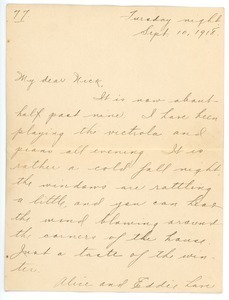 77
Tuesday night
Sept. 10, 1918
My dear Nick,
It is now about
half past nine. I have been
playing the victrola and
piano all evening. It is
rather a cold fall night
the windows are rattling
a little, and you can hear
the wind blowing around
the corners of the house
Just a taste of the win-
ter.
Alice and Eddie have